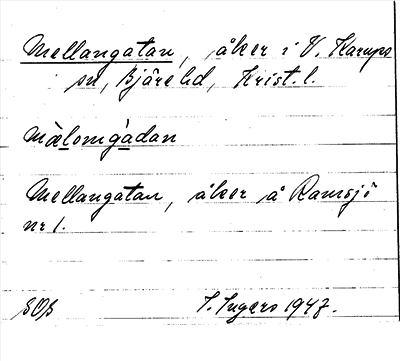 Mellangatan, åker i V. Karups
sn, Bjäre hd, Krist. l.
mälomgàdan
Mellangatan, åker å Ramsjö
nr 1.
SOS
I. Ingers 1947.